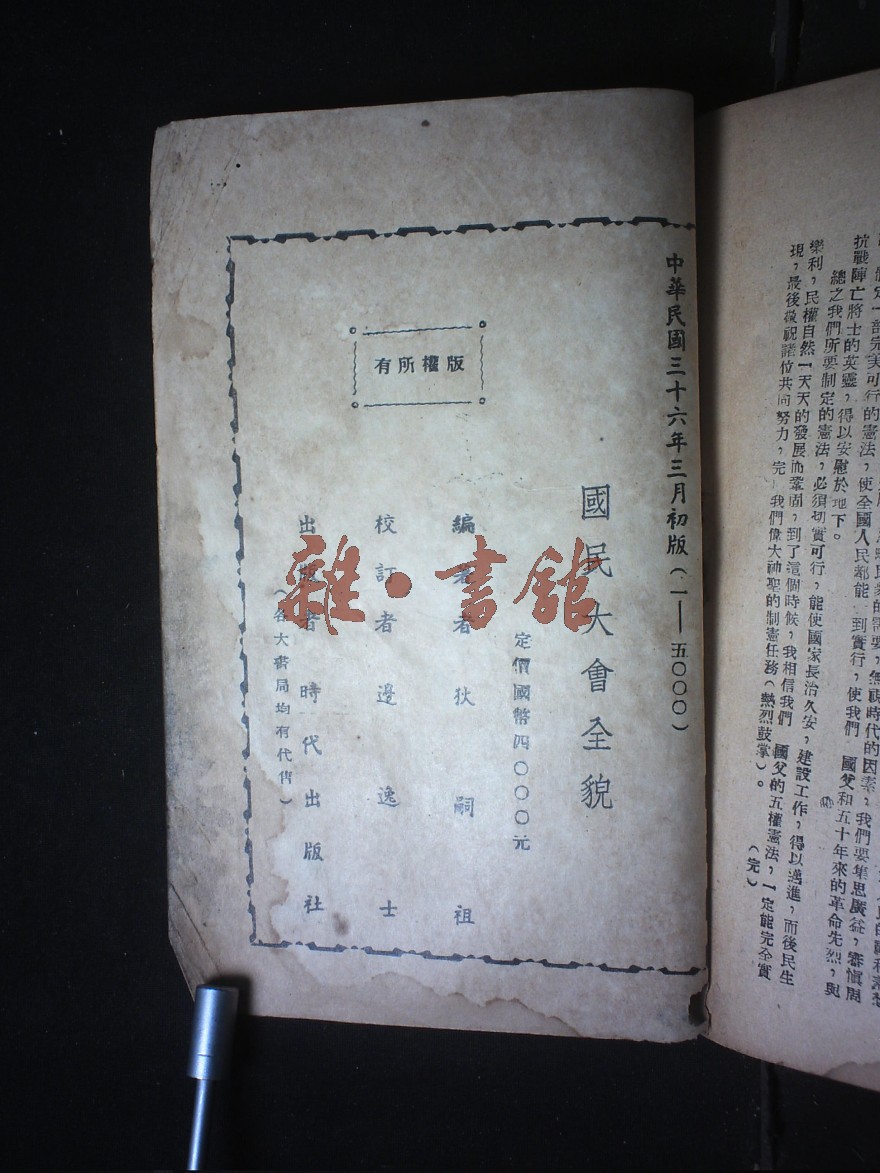 需要，無視時代的因素，我們要集思廣益，審慎周
定一部完美可行的憲法，使全國人民都能 到實行，使我們 國父和五十年來的革命先烈，與
抗戰陣亡將士的英靈，得以安慰於地下。
總之我們所要制定的憲法，必須切實可行，能使國家長治久安，建設工作，得以邁進，而後民生
樂利，民權自然一天天的發展而鞏固，到了這個時候，我相信我們 國父的五權憲法，一定能完全實
現，最後敬祝諸位共同努力，完 我們偉大神聖的制憲任務（熱烈鼓掌）。
（完）
中華民國三十六年三月初版（一——五〇〇〇）
國民大會全貌
定價國幣四〇〇〇元
編著者狄嗣祖
校訂者邊逸士
出版者時代出版社
（各大書局均有代售）
有所權版
雜·書館